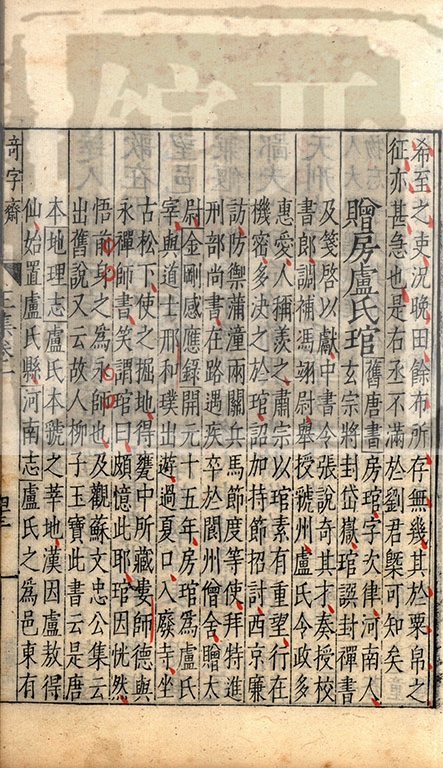 希至之吏況晚田餘布所存無幾其於粟帛之
征亦甚急也是右丞不滿於劉君槩可知矣
贈房盧氏琯
舊唐書房琯字次律河南人
玄宗將封岱嶽琯譔封禪書
及箋啓以獻中書令張說奇其才奏授校
書郎調補馮翊尉舉授虢州盧氏令政多
惠愛人稱羨之肅宗以琯素有重望行在
機密多決之於琯詔加持節招討西京兼
訪防禦蒲潼兩關兵馬節度等使拜特進
刑部尚書在路遇疾卒於閬州僧舍贈太
尉金剛感應錄開元十五年房琯爲盧氏
宰與道士邢和璞出遊過夏口入廢寺坐
古松下使之掘地得甕中所藏婁師德與
永禪師書笑謂琯曰頗憶此耶琯因恍然
悟前身之爲永師也及觀蘇文忠公集云
出舊說又云故人柳子玉寶此書云是唐
本地理志盧氏本虢之莘地漢因盧敖得
仙始置盧氏縣河南志盧氏之爲邑東有
奇字齋